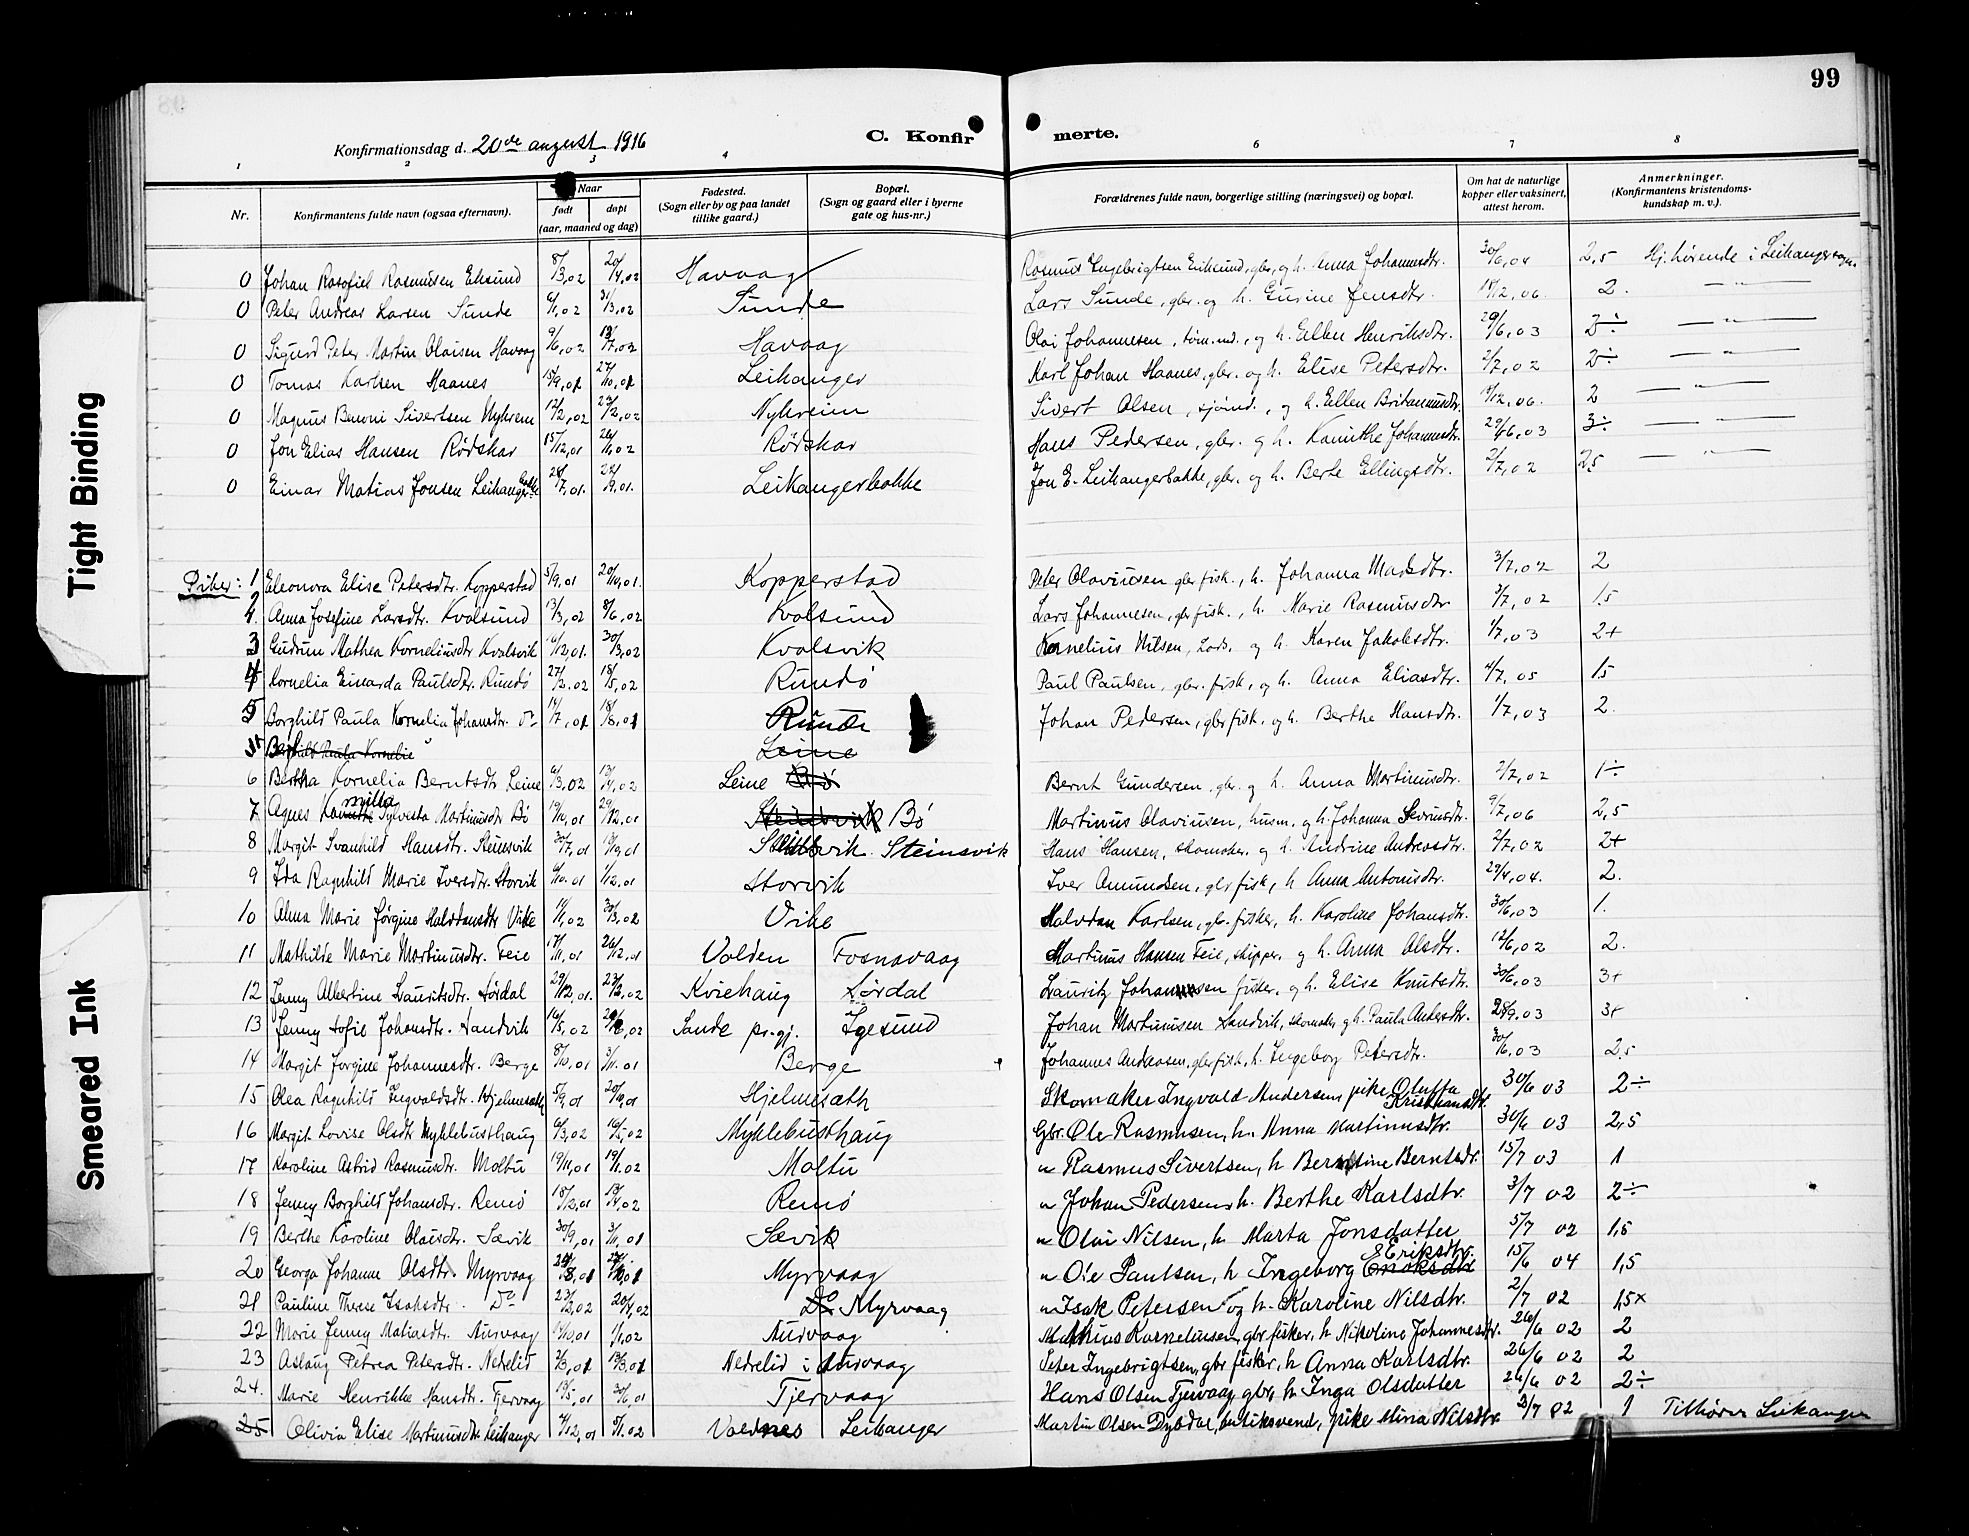 99
Konfirmationsdag d. 20de august 1916
C. Konfirmerte.
1 2 3 4 6 7 8
Nr. Konfirmantens fulde navn (ogsaa efternavn). Naar født døpt (aar, maaned og dag) Fødested. (Sogn eller by og paa landet tillike gaard.) Bopæl. (Sogn og gaard eller i byerne gate og hus-nr.) Forældrenes fulde navn, borgerlige stilling (næringsvei) og bopæl. Om hat de naturlige kopper eller vaksinert, attest herom. Anmerkninger. (Konfirmantens kristendomskundskap m. v.).
0 Johan Rasmusen 8/3,02 20/4,02 Havaag Rasmus Engebrigtsen gbr. og h. Anna Johannesdtr. 30/6,04 2,5 Hj.hørende i Leikanger sogn.
0 Peter Andreas Larsen Sunde 6/1,02 31/3,02 Sunde Lars Sunde, gbr. og h. Gurine Jensdtr. 2. — " —
0 Sigurd Peter Martin Olaisen Havaag 9/6,02 13/7,02 Havaag Olai Johannesen, tøm.md., og h. Ellen Henriksdtr. 29/6,03 2÷ — " —
0 Tomas Karlsen Haanes 15/9,01 27/10,01 Leikanger Karl Johan Haanes, gbr. og h. Elise Petersdtr. 2/7,02 2÷ — " —
0 Magnus Sivertsen Nykrem 12/2,02 Nykreim Sivert Olsen, sjømd., og h. Ellen 2 — " —
0 Jon Elias Hansen Rødskar 15/12,01 Rødskar Hans Pedersen, gbr. og h. Johannesdtr. 29/6,03 3÷ — " —
0 Einar Matias Jonsen Leikangerbakke 7,01. 9,01. Leikangerbakke Jon E. Leikangerbakke, gbr. og h. Berte Ellingsdtr. 2/7,02 2,5 — " —
Piker:
1 Eleonora Elise Petersdtr. Kopperstad 5/9,01 20/10,01. Kopperstad Peter Olaviusen gbr fisk., h. Johanna Madsdtr. 3/7,02 2
2 Anna Josefine Larsdtr. Kvalsund 13/3,02 8/6,02 Kvalsund Lars Johannesen, gbr fisk., h. Marie Rasmusdtr 3/7,02 1,5
3 Gudrun Mathea Korneliusdtr Kvalsvik 16/12,01. 30/3,02 Kvalsvik Kornelius Nilsen, og h. Karen Jakobsdtr. 1/7,03 2+
4 Kornelia Einarda Paulsdtr. Rundø 27/3.02 18/5,02 Rundø Paul Paulsen, gbr. fisk, og h. Anna Eliasdtr. 4/7,05 1,5
5 Borghild Paula Kornelia Johansdtr. do 14/7,01 18/8,01 Runde Johan Pedersen, gbr fisk. og h. Berthe Hansdtr. 1/7,03 2.
Borghild Paula Kornelie Leine
6 Bertha Kornelia Berntsdtr Leine 6/3,02 13/4,02 Leine Bø Bernt Gundersen, gbr. og h. Anna Martinusdtr. 2/7,02 1÷
7 Agnes Kamilla Sylvesta Martinusdtr Bø 19/10,01 29/12,01 Bø Martinus Olaviusen, husm. og h. Johanna Severinsdtr. 9/7,06 2,5
8 Margit Svanhild Hansdtr. Steinsvik 30/7,01 13/10,01 Steinsvik Hans Hansen, skomaker. og h. Andrine Andreasdtr. 2/7,02 2+
9 Ida Ragnhild Marie Iversdtr. Storvik 6/10.01 1/12,01 Storvik Iver Amundsen, gbr fisk, h Anna Antonisdtr. 29/4,04. 2.
10 Alma Marie Jørgine Halvdansdtr Vike 14/1,02 30/3,02 Vike Halvdan Karlsen, gbr. fisker, h. Karoline Johansdtr. 30/6,03 1.
11 Mathilde Marie Martinusdtr. Teie 17/11,01 26/12,01 Volden Fosnavaag Martinus Hansen Teie, skipper. og h. Anna Olsdtr. 12/6,02 2.
12 Jenny Albertine Lauritsdtr. Lørdal 29/12,01. 23/2,02 Kviehaug Lørdal Lauritz Johannesen fisker, og h. Elise Knutsdtr. 30/6,03 3+
13 Jenny Sofie Johansdtr. Sandvik 16/5,02 Sande pr.gj. Igesund Johan Martinusen Sandvik, skomaker og h. Paula Andersdtr. 3+
14 Margit Jorgine Johannesdtr. Berge 8/10,01 3/11.01 Berge Johannes Andreasen, gbr fisk, h. Ingeborg Petersdtr. 30/6,03 2,5
15 Olea Ragnhild Ingvaldsdtr. Hjelmseth 5/9,01 20/10,01 Hjelmsæth Skomaker Ingvald Andersen, pike Oluffa Kristiansdtr. 30/6 03 2÷
16 Margit Lovise Olsdtr Myklebusthaug 6/3,02 Myklebusthaug Gbr. Ole Rasmusen, h. Anna Martinusdtr. 30/6 03 2,5
17 Karoline Astrid Rasmusdtr. Moltu 19/11,01 19/1.02 Moltu " Rasmus Sivertsen, h Berntine Berntsdr. 15/7 03 1
18 Jenny Borghild Johansdtr. Remø 18/12,01 13/4,02 Remø " Johan Pedersen, h. Berthe Karlsdtr. 3/7 02 2÷
19 Berthe Karoline Olaisdtr. Sævik 30/9,01 3/11,01 Sævik " Olai Nilsen, h. Marta Jonsdatter 5/7 02 1,5
20 Georga Johanne Olsdtr. Myrvaag Myrvaag " Ole Paulsen, h Ingeborg Enoksdtr Eriksdtr. 15/6 04 1,5
21 Pauline Therese Isaksdtr. Do 23/2,02 20/4,02 Do Myrvaag " Isak Petersen og h. Karoline Nilsdtr. 2/7 02 1,5x
22 Marie Jenny Matiasdtr. Aurvaag 1/1,02 Aurvaag Mathias Korneliusen, gbr. fisker, h. Nikoline Johannesdtr. 26/6 02 2
23 Aslaug Petrea Petersdtr. Nedrelid 2/3,01 Nedrelid i Aurvaag Peter Ingebrigtsen, gbr fisker, h Anna Karlsdtr. 26/6 02 2
24. Marie Henrikke Hansdtr. Tjervaag 19/5,01 30/6,01 Tjervaag Hans Olsen Tjervaag gbr, h Inga Olsdatter 26/6 02 2÷
25 Olivia Elise Martinusdtr. Leikanger Voldnes Leikanger Martin Olsen pike Mina Nilsdtr. 2/7 02 1 Tilhører Leikanger
Tight Binding
Smeared Ink